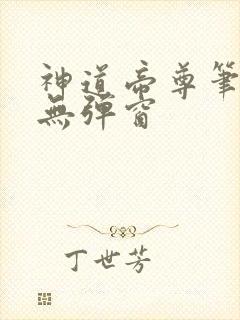 神道帝尊筆
無彈窗
丁世芳